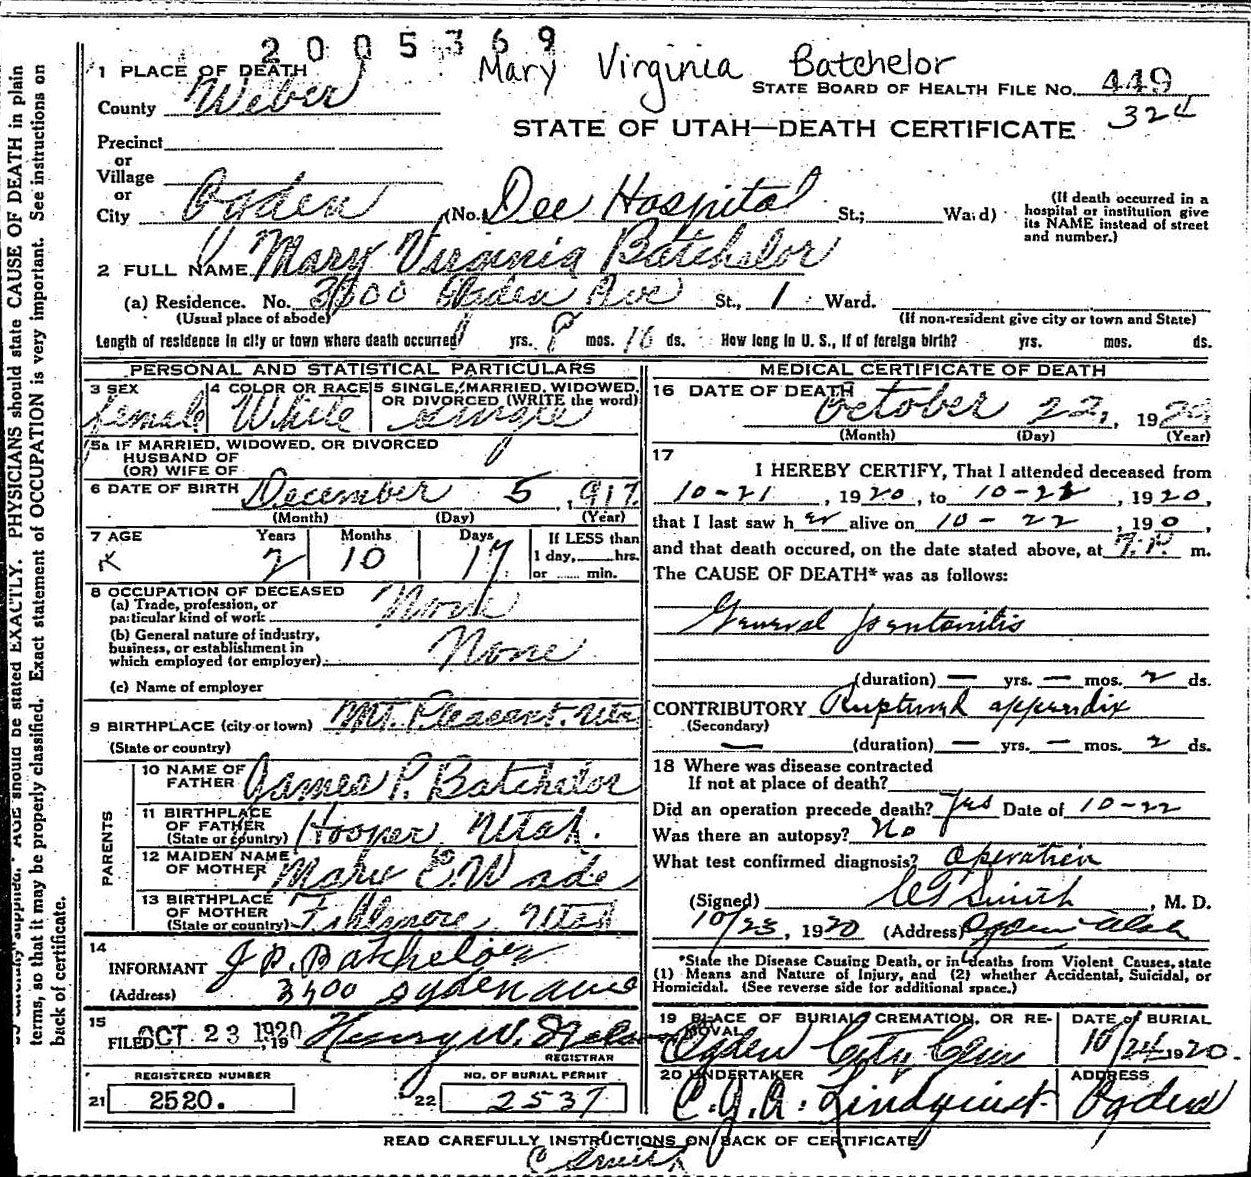 2005369
Mary Virginia Batchelor
1 PLACE OF DEATH
County Weber
STATE BOARD OF HEALTH FILE No. 449
324
STATE OF UTAH—DEATH CERTIFICATE
Precinct
or
Village
or
City Ogden (No. Dee Hospital St.; Ward)
(If death occurred in a hospital or institution give its NAME instead of street and number.)
2 FULL NAME Mary Virginia Batchelor
(a) Residence. No. Ogden Ave St., 1 Ward.
(Usual place of abode) (If non-resident give city or town and State)
Length of residence in city or town where death occurred yrs. 8 mos. 16 ds. How long in U. S., if of foreign birth? yrs. mos. ds.
PERSONAL AND STATISTICAL PARTICULARS
3 SEX female
4 COLOR OR RACE White
5 SINGLE, MARRIED, WIDOWED, OR DIVORCED (WRITE the word) Single
5a IF MARRIED, WIDOWED, OR DIVORCED
HUSBAND OF
(OR) WIFE OF
6 DATE OF BIRTH December 5, 1917
(Month) (Day) (Year)
7 AGE Years 2 Months 10 Days 17
If LESS than
1 day, hrs.
or min.
8 OCCUPATION OF DECEASED
(a) Trade, profession, or
particular kind of work None
(b) General nature of industry,
business, or establishment in
which employed (or employer) None
(c) Name of employer
9 BIRTHPLACE (city or town) Mt. Pleasant. Utah
(State or country)
PARENTS
10 NAME OF FATHER James P. Batchelor
11 BIRTHPLACE OF FATHER (State or country) Hooper Utah.
12 MAIDEN NAME OF MOTHER Mary E. Wade
13 BIRTHPLACE OF MOTHER (State or country) Fillmore Utah
14
INFORMANT J P. Batchelor
(Address) Ogden ave
15
FILED OCT 23 1920, 19 Henry W.
REGISTRAR
REGISTERED NUMBER
21 2520.
NO. OF BURIAL PERMIT
22 2537
MEDICAL CERTIFICATE OF DEATH
16 DATE OF DEATH October 22, 1920
(Month) (Day) (Year)
17
I HEREBY CERTIFY, That I attended deceased from
10-21, 1920, to 10-22, 1920,
that I last saw her alive on 10-22, 190,
and that death occured, on the date stated above, at m.
The CAUSE OF DEATH* was as follows:
General peritonitis
(duration) — yrs. — mos. 2 ds.
CONTRIBUTORY Ruptured appendix
(Secondary)
— (duration) — yrs. — mos. 2 ds.
18 Where was disease contracted
If not at place of death?
Did an operation precede death? Yes Date of 10-22
Was there an autopsy? No
What test confirmed diagnosis? Operation
(Signed) Smith, M. D.
10/23, 1920 (Address) Ogden Utah
*State the Disease Causing Death, or in deaths from Violent Causes, state
(1) Means and Nature of Injury, and (2) whether Accidental, Suicidal, or
Homicidal. (See reverse side for additional space.)
19 PLACE OF BURIAL, CREMATION, OR REMOVAL
Ogden City Cem
DATE of BURIAL
10/24 1920.
20 UNDERTAKER
Lindquist
ADDRESS
Ogden
READ CAREFULLY INSTRUCTIONS ON BACK OF CERTIFICATE
C Smith
AGE should be stated EXACTLY. PHYSICIANS should state CAUSE OF DEATH in plain
terms, so that it may be properly classified. Exact statement of OCCUPATION is very important. See instructions on
back of certificate.